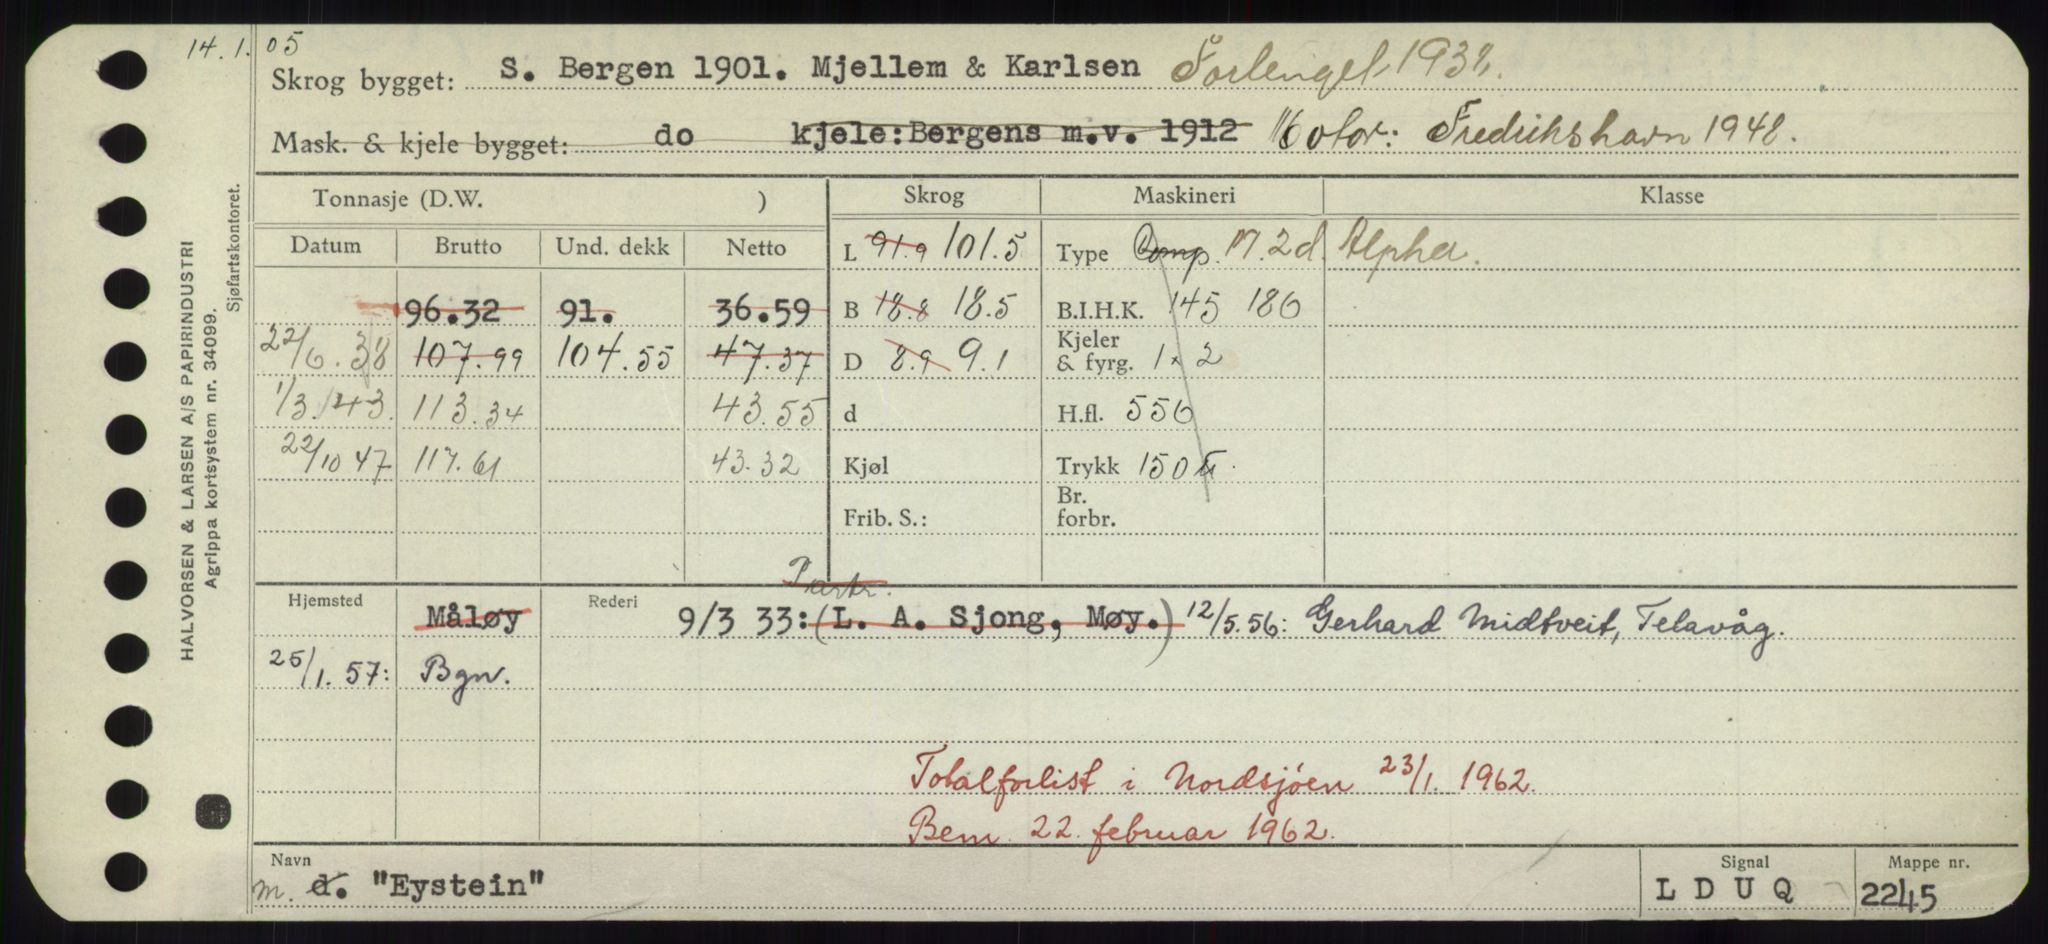 14.1.05
Skrog bygget: S. Bergen 1901. Mjellem & Karlsen Forlenget 1938.
Mask. & kjele bygget: do kjele:Bergens m.v. 1912 Motor: Fredrikshavn 1948.
Tonnasje (D.W. ) Skrog Maskineri Klasse
Datum Brutto Und. dekk Netto L 91.9 101.5 Type Comp. M.2d. Alpha.
96.32 91. 36.59 B 18.8 18.5 B.I.H.K. 145 180
22/6.38 107.99 104.55 47.37 D 8.9 9.1 Kjeler & fyrg. 1 x 2
1/3.43. 113.34 43.55 d H.fl. 556
22/10 47 117.61 43.32 Kjøl Trykk 150
Frib. S.: Br. forbr.
Partr.
Hjemsted Måløy Rederi 9/3 33:(L. A. Sjong, Møy.) 12/5.56: Gerhard Midtveit, Telavåg.
25/1.57: Bgn.
Totalforlist i Nordsjøen 23/1. 1962.
Bem. 22. februar 1962.
Navn Signal Mappe nr.
m. d. "Eystein" L D U Q 2245
HALVORSEN & LARSEN A/S PAPIRINDUSTRI
Agrippa kortsystem nr. 34099.
Sjøfartskontoret.